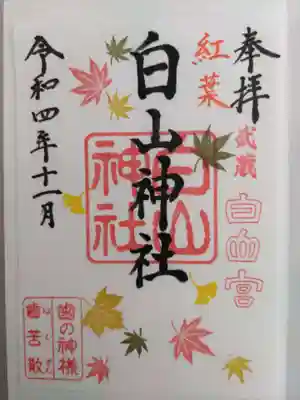 奉拝
紅葉
武蔵
白山宮
白山神社
白山
神社
令和四年十一月
歯の神様
歯苦散